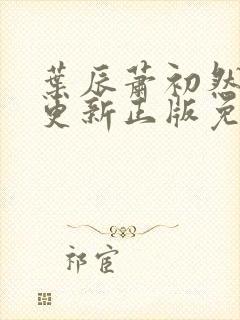 葉辰蕭初然
更新正版免
祁宦